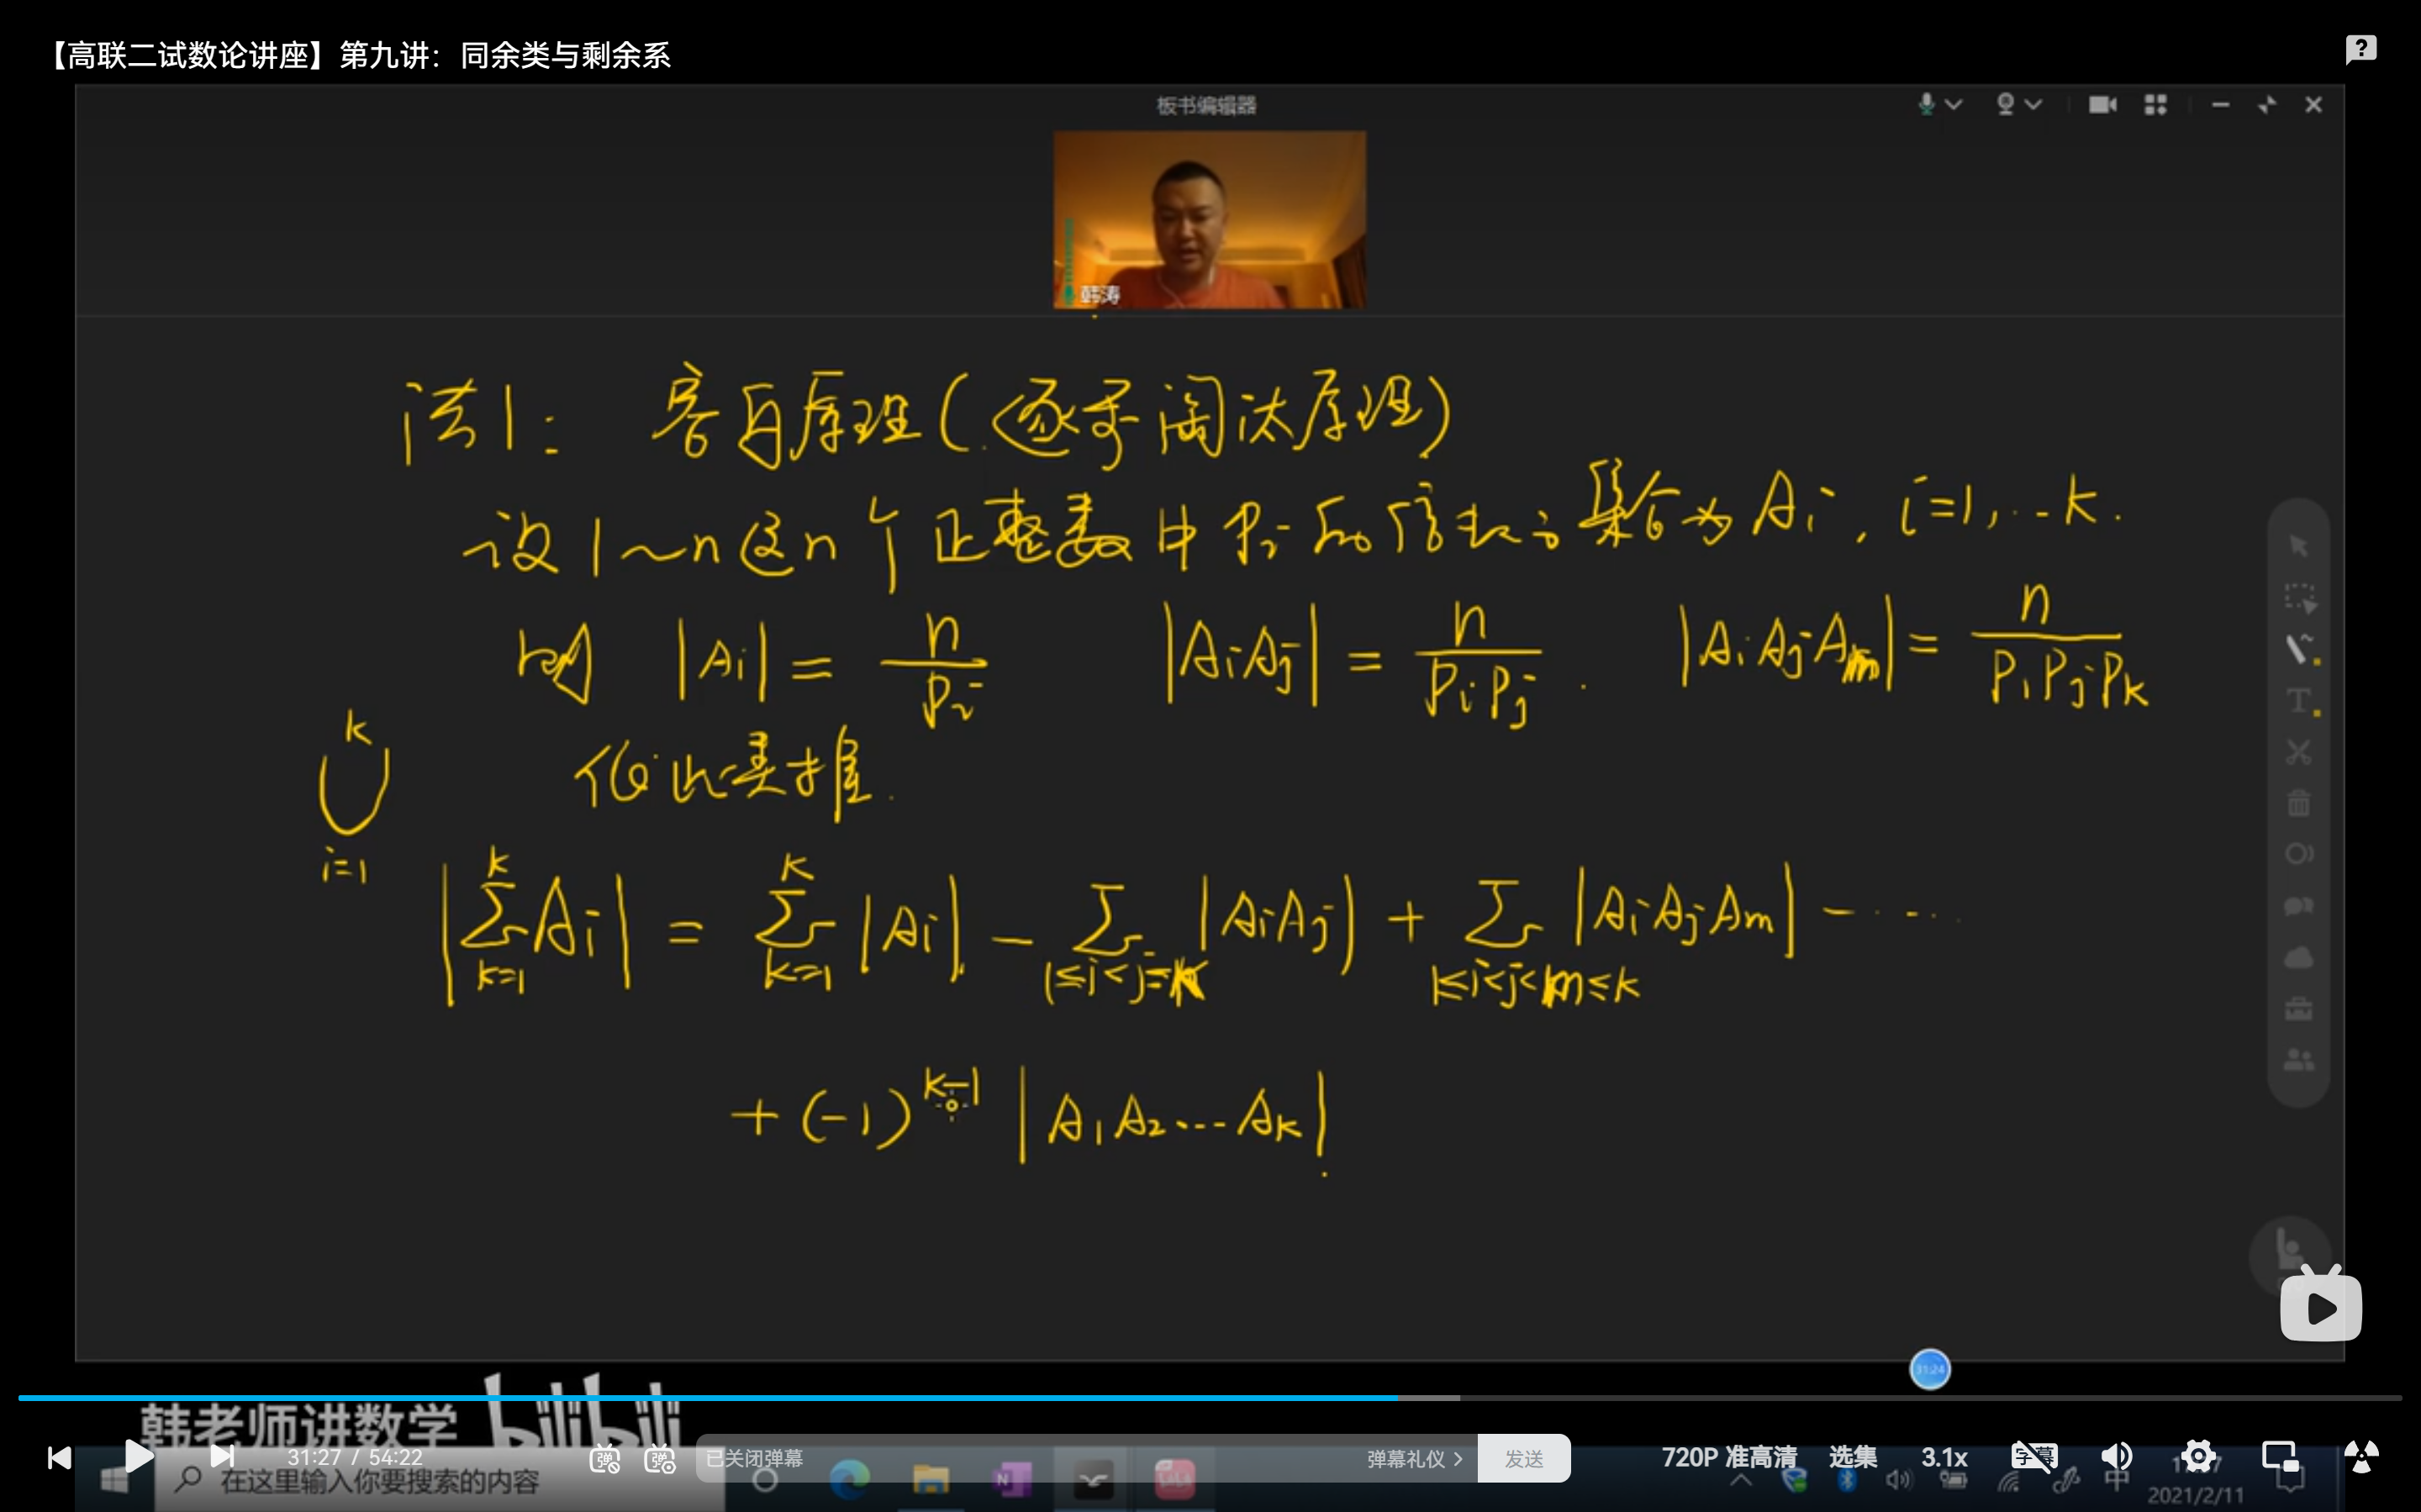 【高联二试数论讲座】第九讲：同余类与剩余系
板书编辑器
韩涛
法1: 容斥原理(逐步淘汰原理)
设1~n这n个正整数中Pi的倍数的集合为Ai, i=1,...k.
则 |Ai| = n/Pi |AiAj| = n/PiPj . |AiAjAm| = n/PiPjPk
k
∪
i=1
依此类推.
|∑_{k=1}^{k} Ai| = ∑_{k=1}^{k} |Ai| - ∑_{1≤i<j≤k} |AiAj| + ∑_{1≤i<j<m≤k} |AiAjAm| - ·····
+ (-1)^{k-1} |A1A2...Ak|.
31:24
韩老师讲数学 bilibili
31:27 / 54:22
已关闭弹幕
弹幕礼仪 >
发送
720P 准高清
选集
3.1x
字幕
在这里输入你要搜索的内容
中
2021/2/11